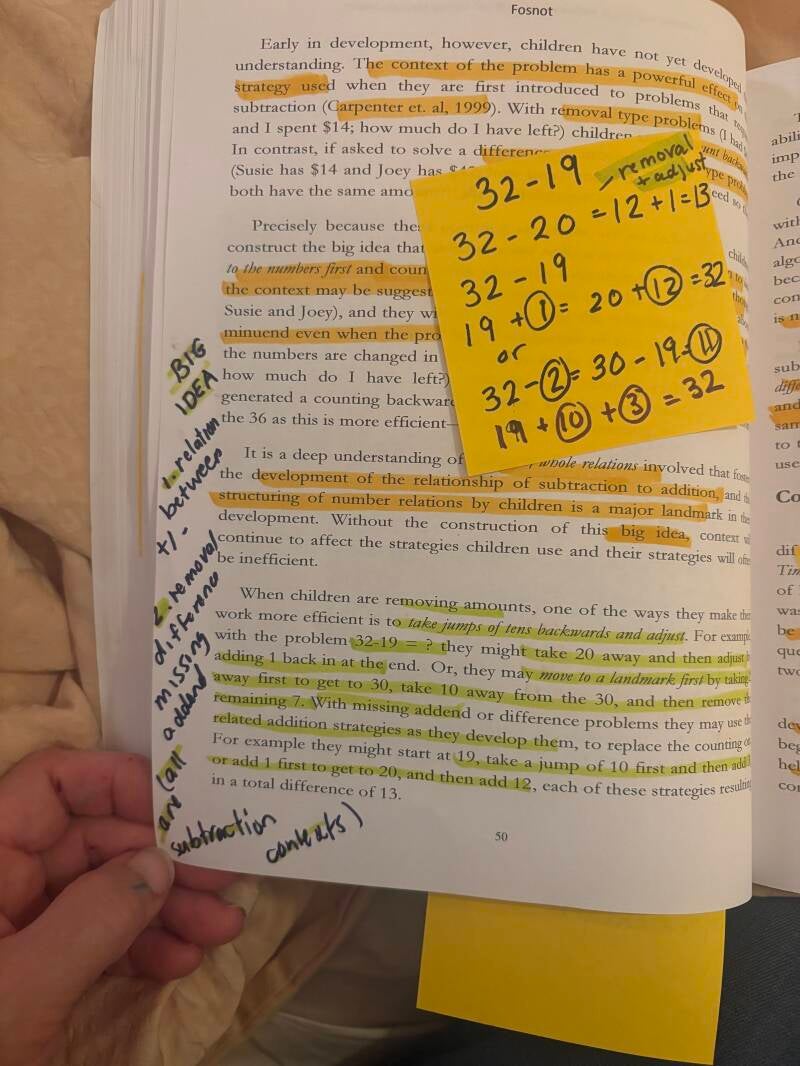 Fosnot
Early in development, however, children have not yet developed
understanding. The context of the problem has a powerful effect on
strategy used when they are first introduced to problems that
subtraction (Carpenter et. al, 1999). With removal type problems (I had
and I spent $14; how much do I have left?) children
In contrast, if asked to solve a difference
(Susie has $14 and Joey has
both have the same amo
Precisely because
construct the big idea that
to the numbers first and coun
the context may be suggest
Susie and Joey), and they wi
minuend even when the pro
the numbers are changed in
how much do I have left?)
generated a counting backward
the 36 as this is more efficient—
It is a deep understanding of whole relations involved that
the development of the relationship of subtraction to addition, and
structuring of number relations by children is a major landmark in the
development. Without the construction of this big idea, context
continue to affect the strategies children use and their strategies will
be inefficient.
When children are removing amounts, one of the ways they make
work more efficient is to take jumps of tens backwards and adjust. For
with the problem 32-19 = ? they might take 20 away and then adjust
adding 1 back in at the end. Or, they may move to a landmark first by taking
away first to get to 30, take 10 away from the 30, and then remove
remaining 7. With missing addend or difference problems they may use
related addition strategies as they develop them, to replace the counting
For example they might start at 19, take a jump of 10 first and then add
or add 1 first to get to 20, and then add 12, each of these strategies
in a total difference of 13.
50
32-19
removal
+ adjust
32-20 = 12 + 1 = 13
32-19
19 + 1 = 20 + 12 = 32
or
32-2 = 30 - 19 = 11
19 + 10 + 3 = 32
BIG
IDEA
1. relation
between
+/-
2. removal
difference
missing
addend
(all
are
subtraction
contexts)
Co